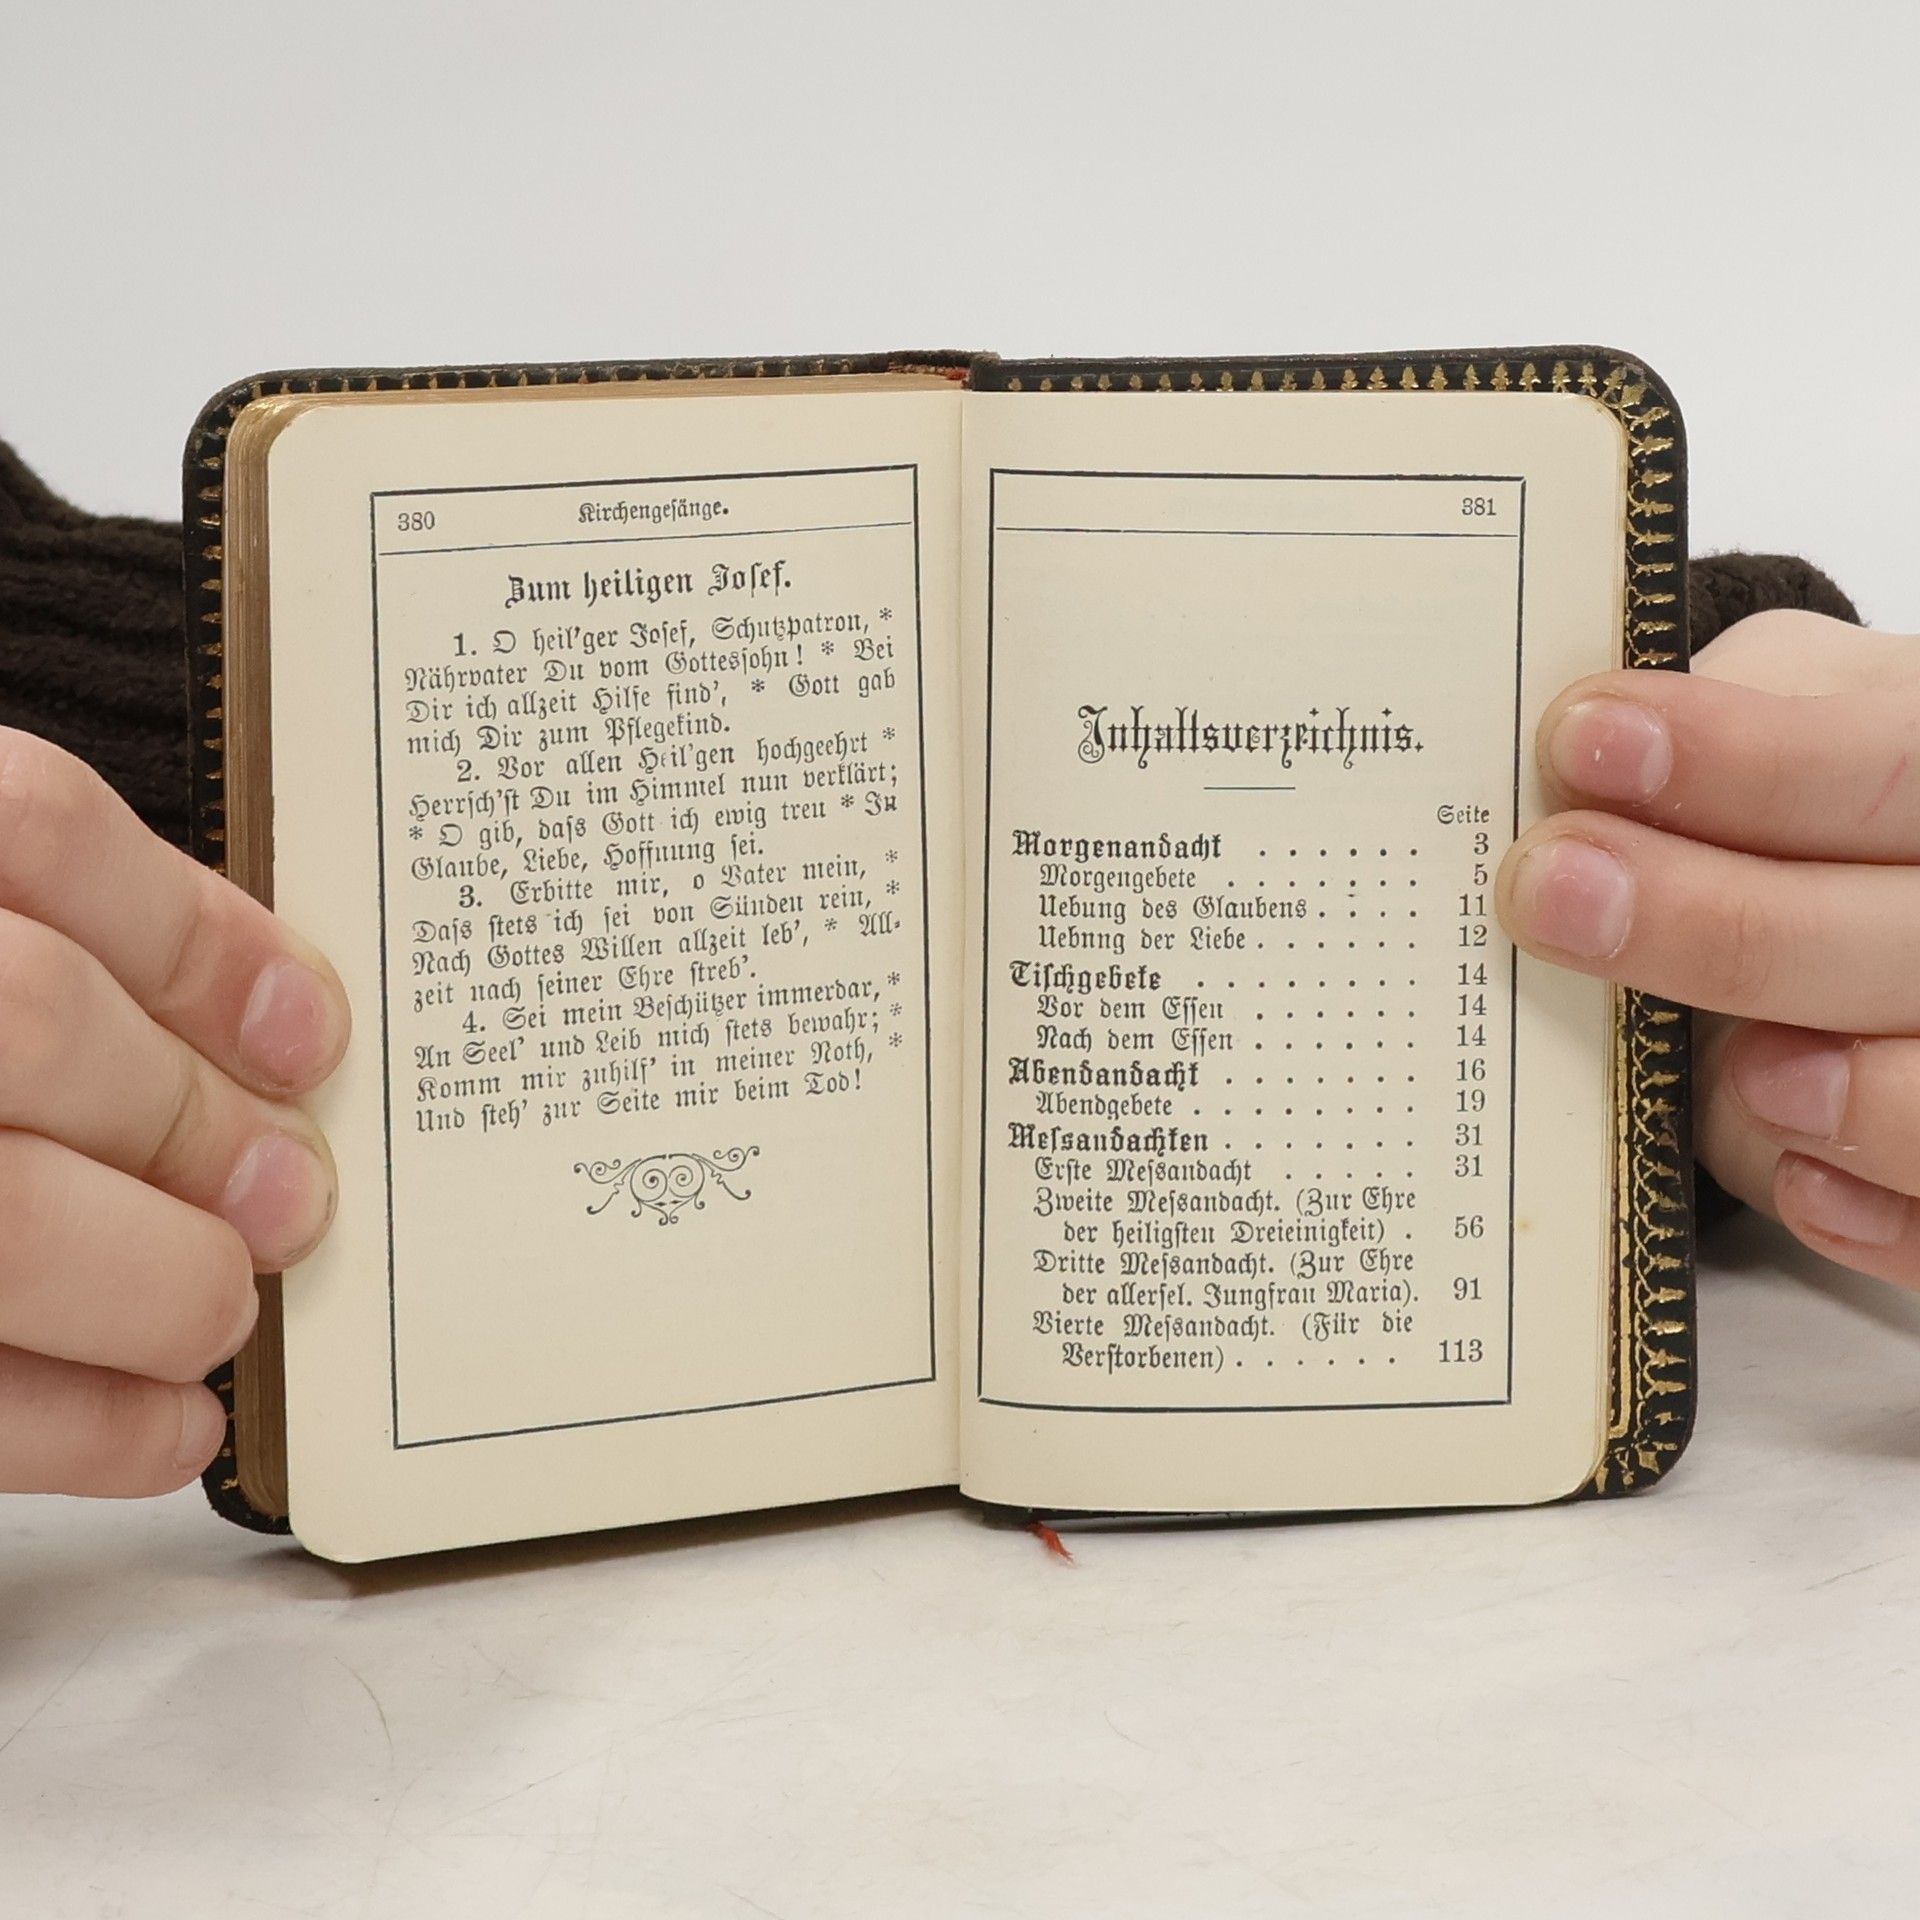 380 Kirchengesänge.
Zum heiligen Josef.
1. O heil'ger Josef, Schutzpatron, *
Nährvater Du vom Gottessohn! * Bei
Dir ich allzeit Hilfe find', * Gott gab
mich Dir zum Pflegekind.
2. Vor allen Heil'gen hochgeehrt *
Herrsch'st Du im Himmel nun verklärt;
* O gib, dass Gott ich ewig treu * In
Glaube, Liebe, Hoffnung sei.
3. Erbitte mir, o Vater mein, *
Dass stets ich sei von Sünden rein, *
Nach Gottes Willen allzeit leb', * All-
zeit nach seiner Ehre streb'.
4. Sei mein Beschützer immerdar, *
An Seel' und Leib mich stets bewahr; *
Komm mir zuhilf' in meiner Noth, *
Und steh' zur Seite mir beim Tod!
381
Inhaltsverzeichnis.
Seite
Morgenandacht . . . . . . 3
Morgengebete . . . . . . . 5
Uebung des Glaubens . . . . 11
Uebnng der Liebe . . . . . . 12
Tischgebete . . . . . . . . 14
Vor dem Essen . . . . . . 14
Nach dem Essen . . . . . . 14
Abendandacht . . . . . . . 16
Abendgebete . . . . . . . . 19
Messandachten . . . . . . . 31
Erste Messandacht . . . . . 31
Zweite Messandacht. (Zur Ehre
der heiligsten Dreieinigkeit) . 56
Dritte Messandacht. (Zur Ehre
der allersel. Jungfrau Maria). 91
Vierte Messandacht. (Für die
Verstorbenen) . . . . . . 113